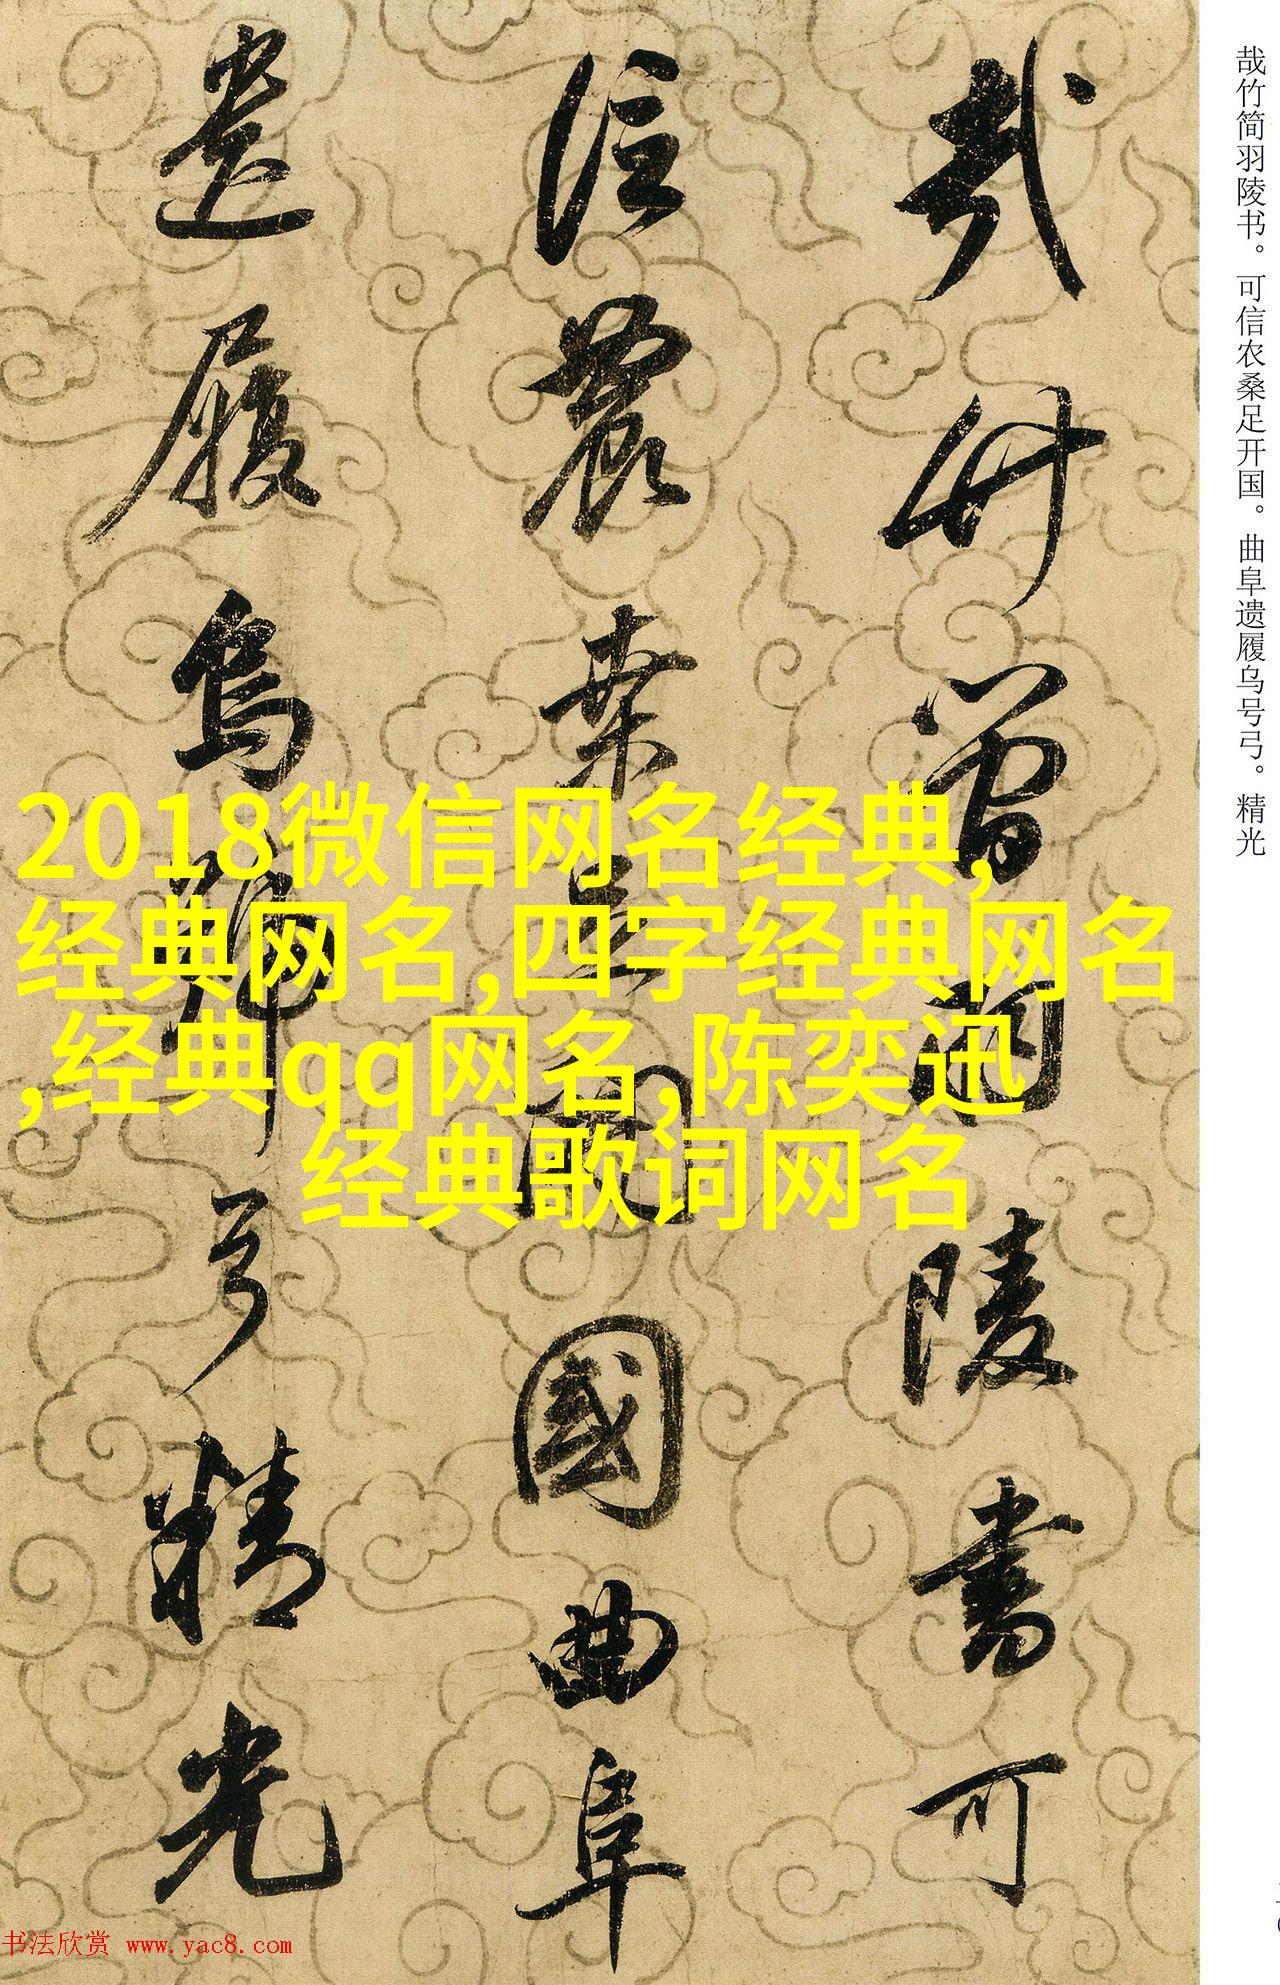 哉竹简羽陵书。可信农桑足开国。曲阜遗履乌号弓。精光
哉竹簡羽陵書可
信農桒足開國曲阜
遺履烏號弓精光
2018微信网名经典,
经典网名,四字经典网名
,经典qq网名,陈奕迅
经典歌词网名
书法欣赏 www.yac8.com